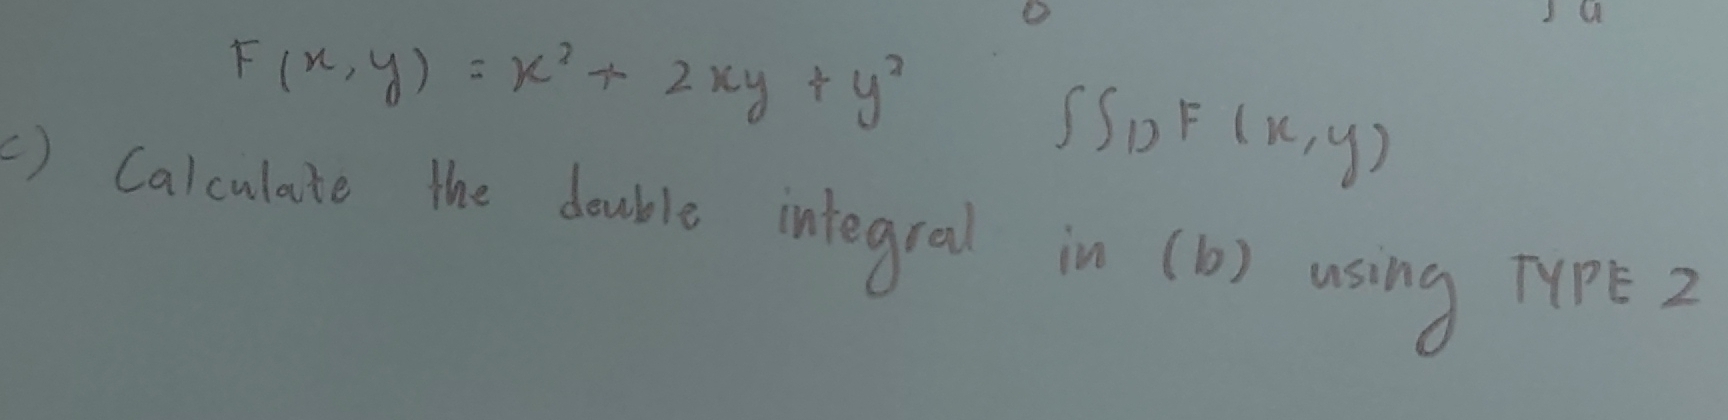 F(x,y) = x² + 2xy + y² ∫∫_D F(x,y)
c) Calculate the double integral in (b) using TYPE 2